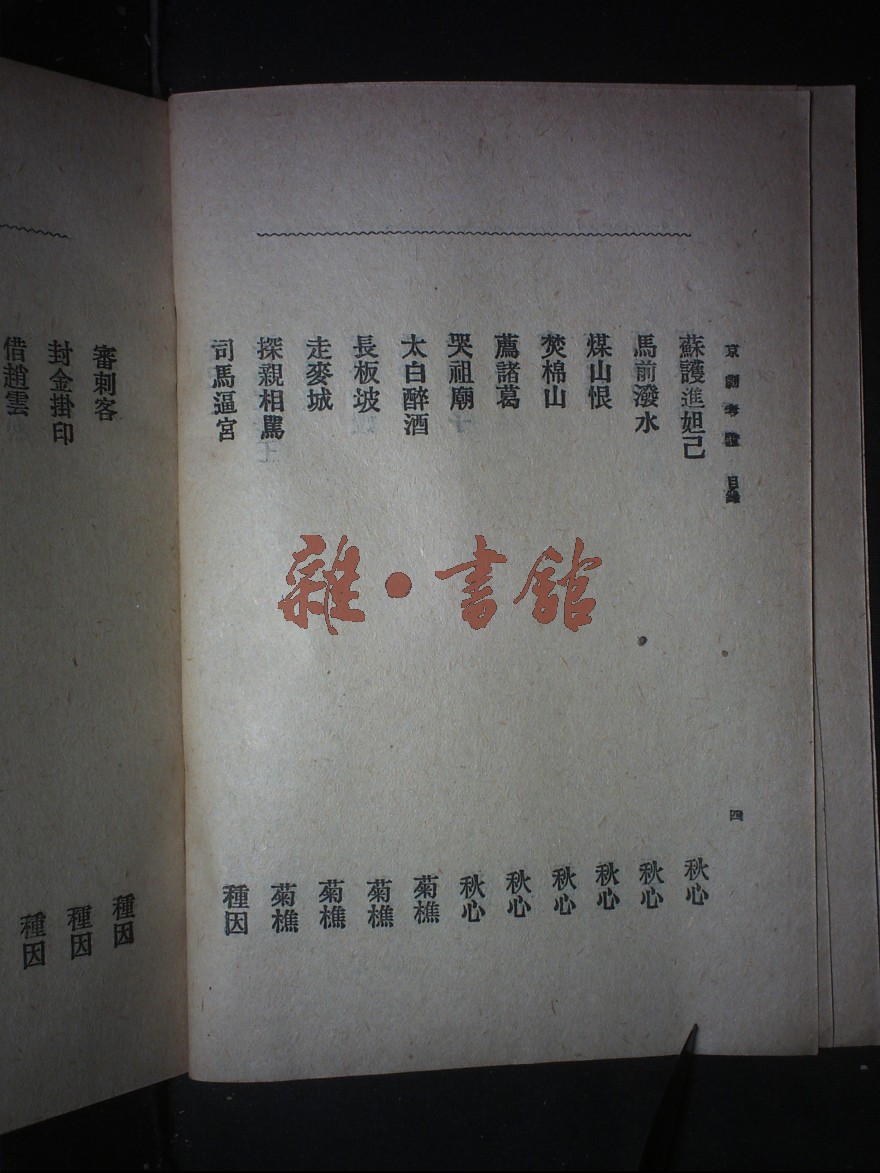 京劇考證 目錄
四
蘇護進妲己 秋心
馬前潑水 秋心
煤山恨 秋心
焚棉山 秋心
薦諸葛 秋心
哭祖廟 秋心
太白醉酒 菊樵
長板坡 菊樵
走麥城 菊樵
探親相罵 菊樵
司馬逼宮 種因
審刺客 種因
封金掛印 種因
借趙雲 種因
雜·書館